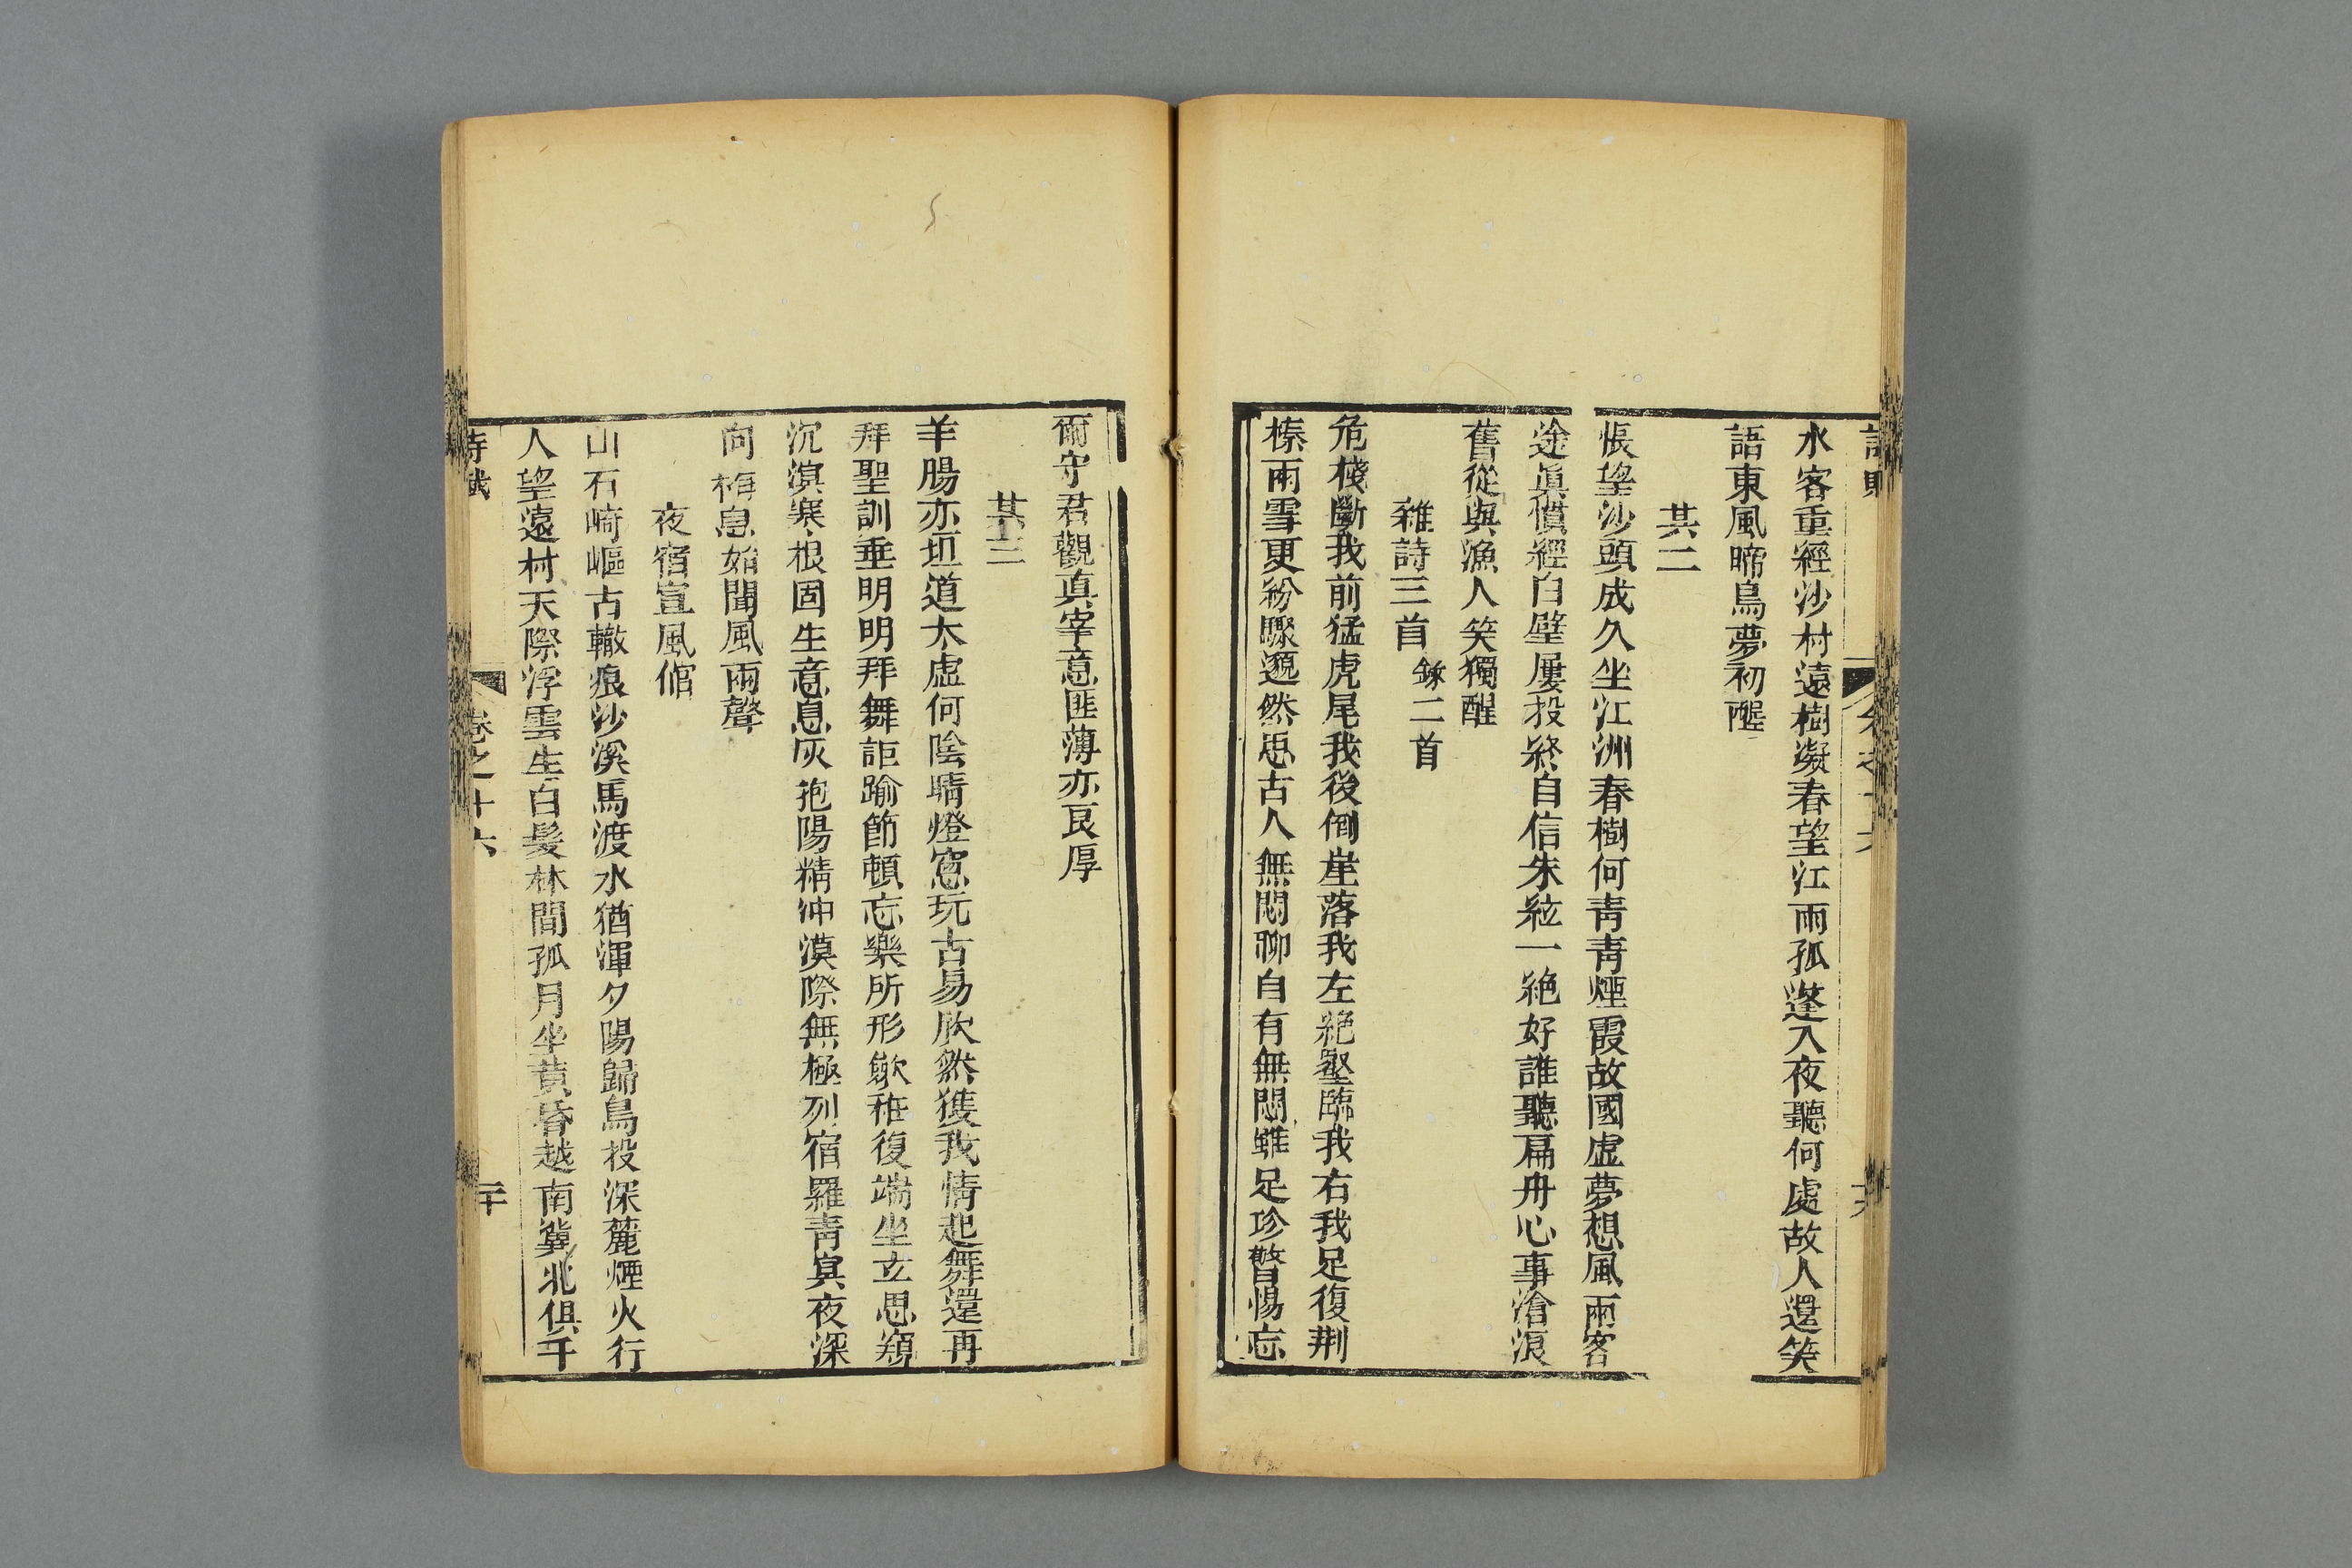 水客重經沙村遠樹凝春望江雨孤蓬入夜聽何處故人還笑
語東風啼鳥夢初醒
其二
悵望沙頭成久坐江洲春樹何靑靑煙霞故國虛夢想風雨客
途眞慣經白壁屢投終自信朱絃一絶好誰聽扁舟心事滄浪
舊從與漁人笑獨醒
雜詩三首 錄二首
危棧斷我前猛虎尾我後倒崖落我左絶壑臨我右我足復荆
榛雨雪更紛驟邈然思古人無悶聊自有無悶雖足珍警惕忘
爾守君觀真宰意匪薄亦良厚
其三
羊腸亦坦道太虛何陰晴燈窻玩古易欣然獲我情起舞還再
拜聖訓垂明明拜舞詎踰節頓忘樂所形歛袵復端坐玄思窺
沉溟寒根固生意息灰抱陽精冲漠際無極列宿羅青冥夜深
向梅息始聞風雨聲
夜宿宣風館
山石崎嶇古轍痕沙溪馬渡水猶渾夕陽歸鳥投深麓煙火行
人望遠村天際浮雲生白髮林間孤月坐黄昏越南冀北俱千
詩賦 卷之十六 二十